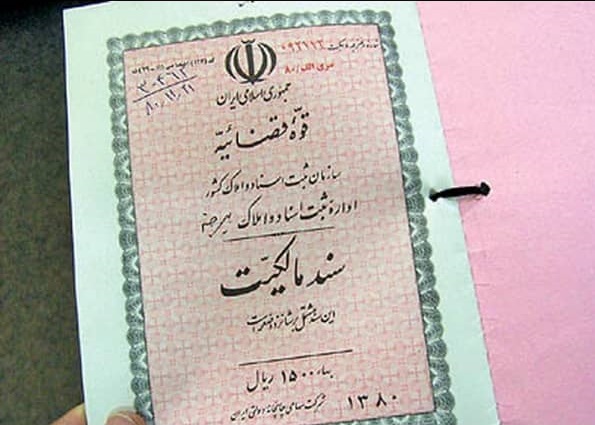 ۰۹۲۱۱۲
سری الف/۸۰
۳۰۴۱۲
۸۰/۱۱/۲۱
جمهوری اسلامی ایران
قوهٔ قضائیه
سازمان ثبت اسناد و املاک کشور
اداره ثبت اسناد و املاک
سند مالکیت
این سند مشتمل بر شانزده صفحه است
بهاء ۱۵۰۰ ریال
۱۳۸۰
شرکت سهامی چاپخانه دولتی ایران